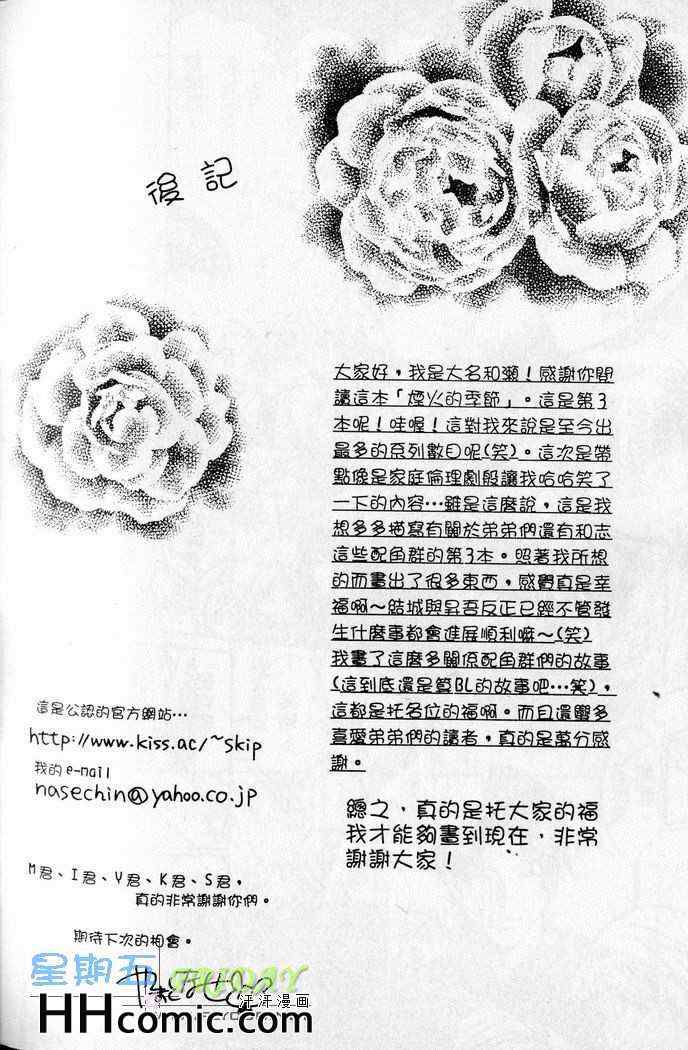 後記
大家好，我是大名和瀨！感謝你閱
讀這本「煙火的季節」。這是第3
本呢！哇喔！這對我來說是至今出
最多的系列數目呢(笑)。這次是帶
點像是家庭倫理劇般讓我哈哈笑了
一下的內容…雖是這麼說，這是我
想多多描寫有關於弟弟們還有和志
這些配角群的第3本。照著我所想
的而畫出了很多東西，感覺真是幸
福啊～結城與昇吾反正已經不管發
生什麼事都會進展順利嘛～(笑)
我畫了這麼多關係配角群們的故事
(這到底還是算BL的故事吧…笑)，
這都是托各位的福啊。而且還興多
喜愛弟弟們的讀者，真的是萬分感
謝。
總之，真的是托大家的福
我才能夠畫到現在，非常
謝謝大家！
這是公認的官方網站…
http://www.kiss.ac/~skip
我的e-mail
nasechin@yahoo.co.jp
M君、I君、Y君、K君、S君，
真的非常謝謝你們。
期待下次的相會。
星期五 FRIDAY
やまとなせ
汗汗漫画
HHcomic.com